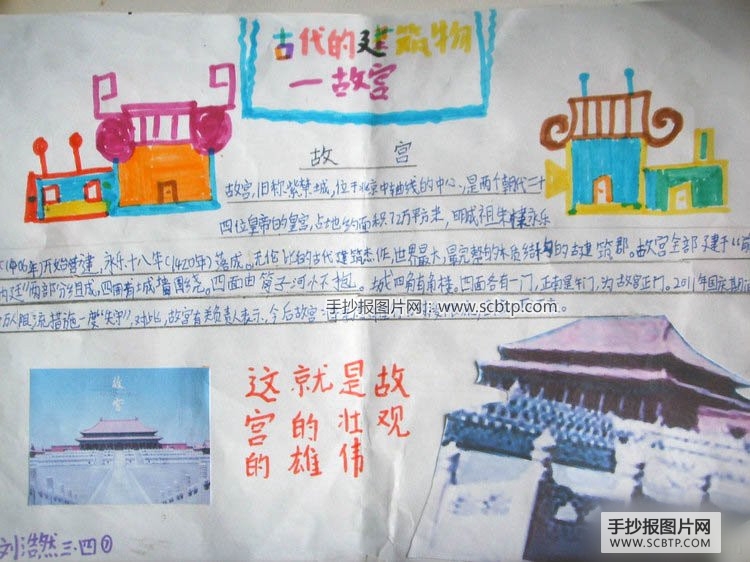 古代的建筑物
一故宫
故 宫
故宫,旧称紫禁城,位于北京中轴线的中心,是两个朝代二十
四位皇帝的皇宫,占地约面积72万平方米,明成祖朱棣永乐
(1406年)开始营建,永乐十八年(1420年)落成。无伦比的古代建筑杰作,世界最大,最完整的木质结构的古建筑郡。故宫全部建于“前
内廷”两部分组成,四周有城墙围绕。四面由筒子河环抱。城四角有角楼。四面各有一门,正南是午门,为故宫正门。2011年国庆
限流措施一度“失守”,对此,故宫有关负责人表示,今后故宫
手抄报图片网:
www.scbtp.com
故宫
这就是故
宫的壮观
的雄伟
刘浩然三·四⑦
手抄报图片网
WWW.SCBTP.COM